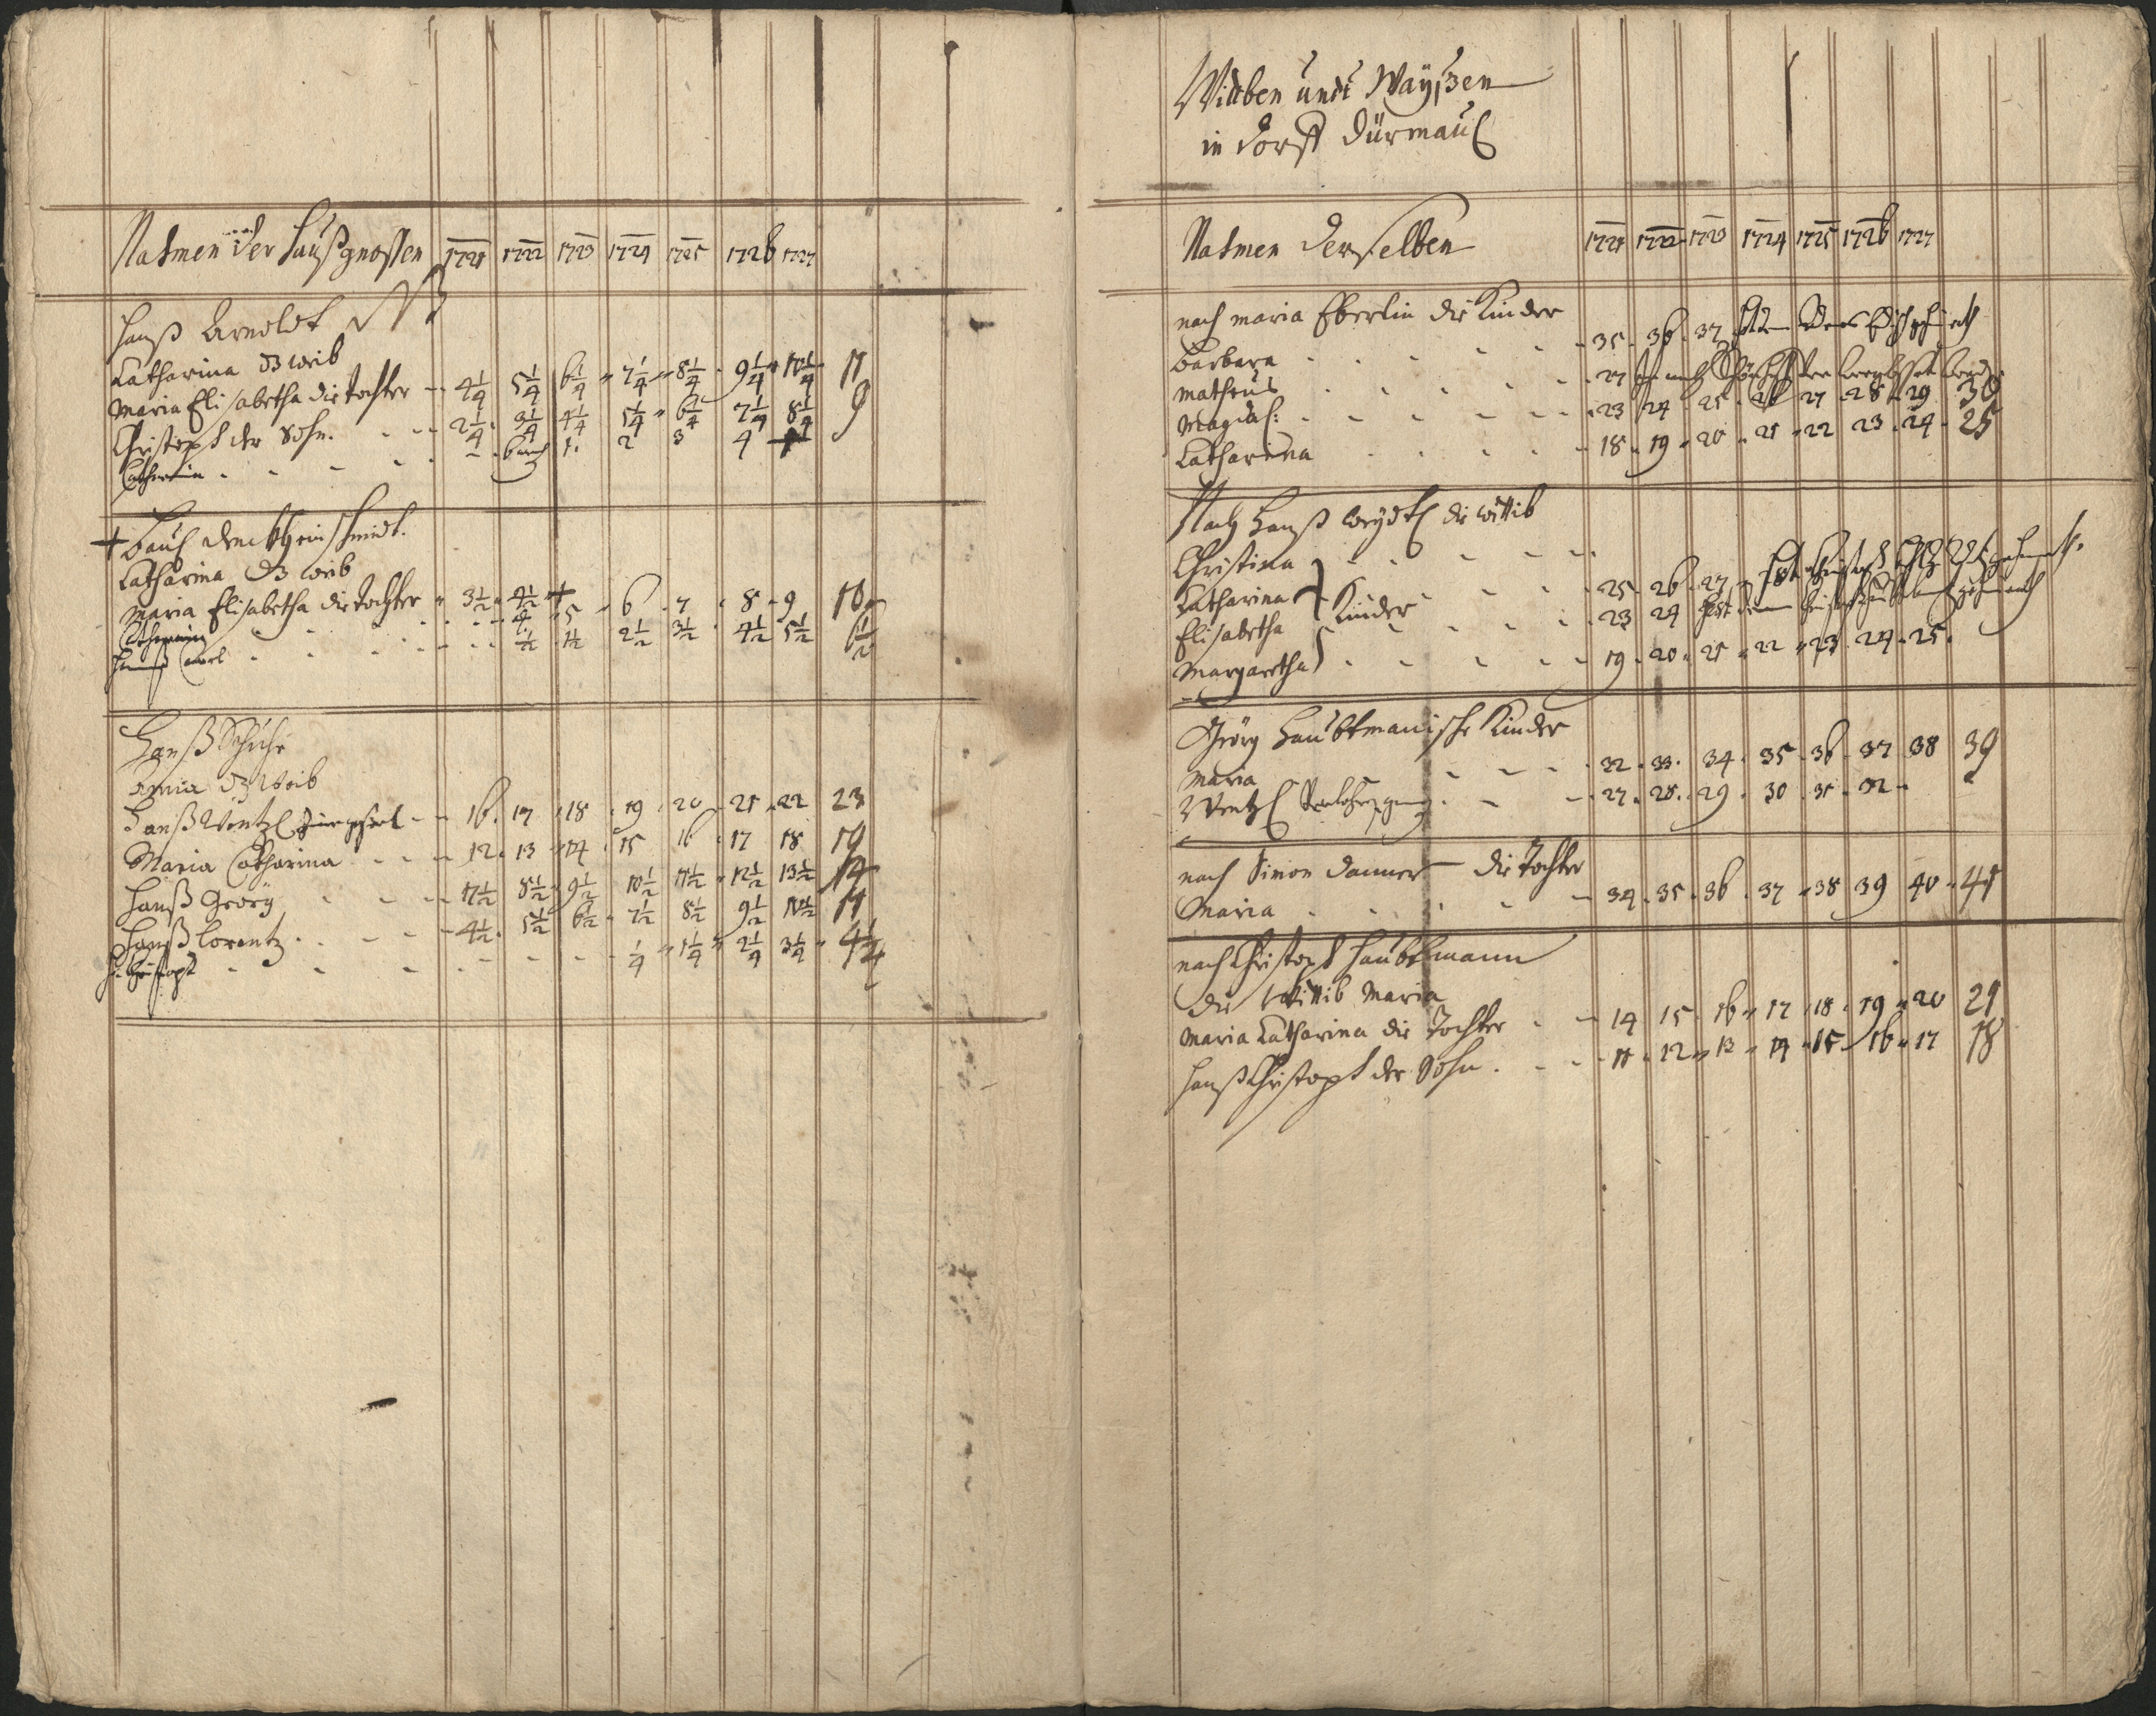 Nahmen der Haußgnossen 1721 1722 1723 1724 1725 1726 1727
Hanß Arnoldt NB
Catharina d3 weib
Maria Elisabetha die Tochter 4 1/4 5 1/4 6 1/4 7 1/4 8 1/4 9 1/4 10 1/4 11
Christoph der Sohn. 2 1/4 3 1/4 4 1/4 5 1/4 6 1/4 7 1/4 8 1/4 9
Catharina 1. 2 3 4
+
Catharina d3 weib
Maria Elisabetha die Tochter 3 1/2 4 1/2 +
4 5 6 7 8 9 10
Hannß Carl 1/2 1 1/2 2 1/2 3 1/2 4 1/2 5 1/2 6 1/2
Hanß
Anna d3 Weib
Hanß Wentzl 16. 17 18 19 20 21 22 23
Maria Catharina 12. 13 14 15 16 17 18 19
Hanß Georg 7 1/2 8 1/2 9 1/2 10 1/2 11 1/2 12 1/2 13 1/2 14
Hanß Lorentz 4 1/2 5 1/2 6 1/2 7 1/2 8 1/2 9 1/2 10 1/2 11
H. Christoph 1/4 1 1/4 2 1/4 3 1/4 4 1/4
Wittben undt Wayßen
in Dorff Dürmaul
Nahmen derselben 1721 1722 1723 1724 1725 1726 1727
nach Maria Eberlin die Kinder
Barbara 35. 36. 37
Matheus 27
Magdal: 23 24 25 26 27 28 29 30
Catharina 18. 19. 20 21 22 23. 24. 25
Nach Hanß die Wittib
Christina
Catharina 25. 26. 27
Elisabetha Kinder 23 24
Margaretha 19. 20. 21 22 23. 24. 25.
Georg Haubtmanische Kinder
Maria 32. 33. 34. 35. 36. 37 38 39
Wentzl 27. 28. 29. 30 31. 32
nach Simon Danner die Tochter
Maria 34. 35. 36. 37 38 39 40. 41
nach Christoph Haubtmann
die Wittib Maria
Maria Catharina die Tochter 14 15. 16 17 18. 19 20 21
Hanß Christoph der Sohn. 11. 12 13 14 15 16 17 18